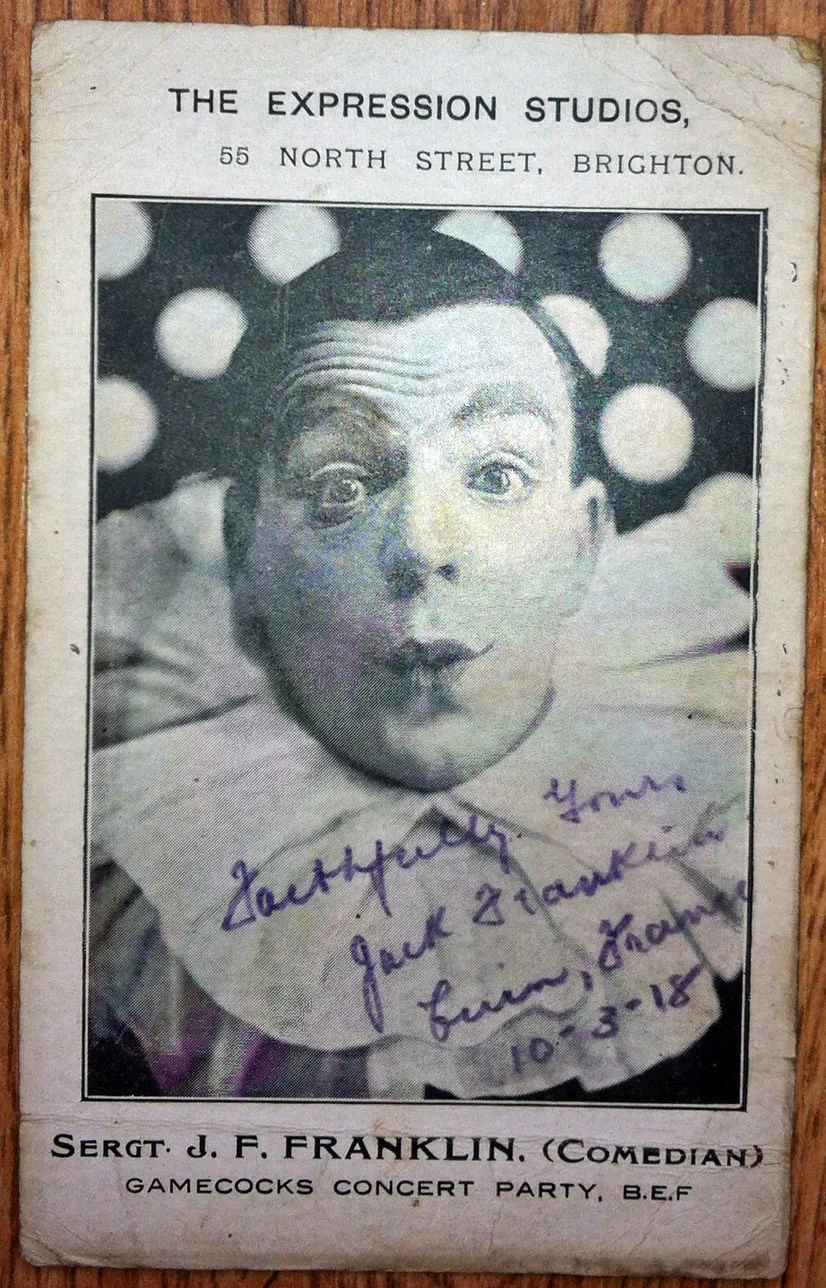 THE EXPRESSION STUDIOS,
55 NORTH STREET, BRIGHTON.
Faithfully Yours
Jack Franklin
France
10-3-18
SERGT. J. F. FRANKLIN. (COMEDIAN)
GAMECOCKS CONCERT PARTY, B.E.F